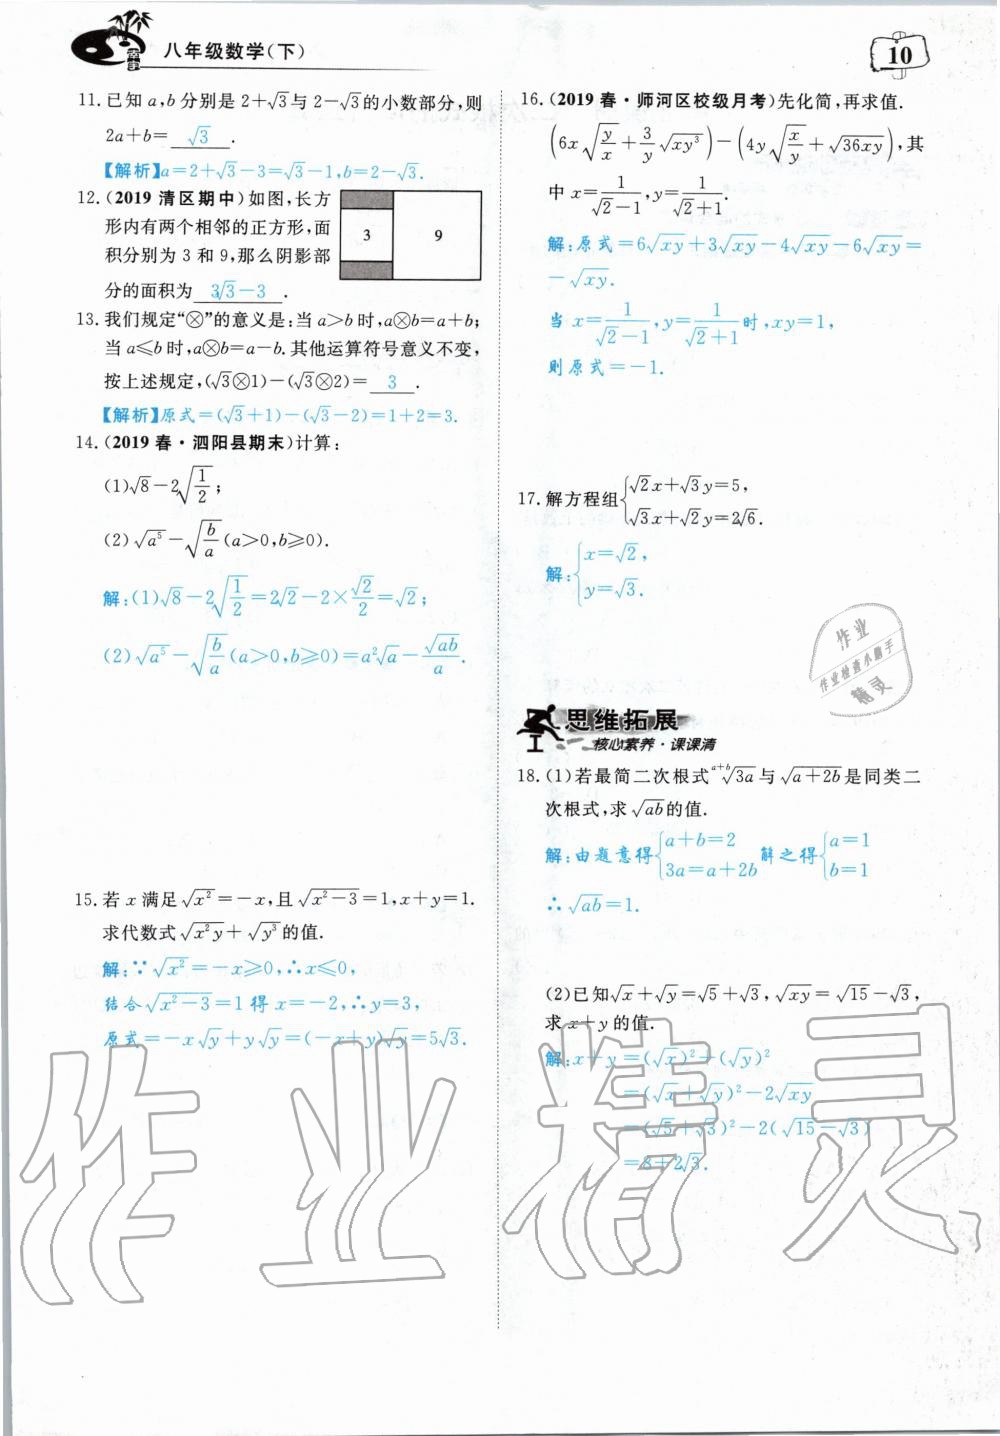 八年级数学(下)
10
11. 已知 a,b 分别是 2+√3 与 2-√3 的小数部分,则
2a+b= √3 .
【解析】a=2+√3-3=√3-1,b=2-√3.
12. (2019 清区期中)如图,长方
形内有两个相邻的正方形,面
积分别为 3 和 9,那么阴影部
分的面积为 3√3-3 .
3
9
13. 我们规定“⊗”的意义是:当 a>b 时,a⊗b=a+b;
当 a≤b 时,a⊗b=a-b. 其他运算符号意义不变,
按上述规定,(√3⊗1)-(√3⊗2)= 3 .
【解析】原式=(√3+1)-(√3-2)=1+2=3.
14. (2019 春·泗阳县期末)计算:
(1)√8-2√(1/2);
(2) √(a⁵)-√(b/a)(a>0,b≥0).
解:(1)√8-2√(1/2)=2√2-2×√2/2=√2;
(2)√(a⁵)-√(b/a)(a>0,b≥0)=a²√a-√(ab)/a.
15. 若 x 满足√(x²)=-x,且√(x²-3)=1,x+y=1.
求代数式√(x²y)+√(y³)的值.
解:∵√(x²)=-x≥0,∴x≤0,
结合√(x²-3)=1 得 x=-2,∴y=3,
原式=-x√y+y√y=(-x+y)√y=5√3.
16. (2019 春·师河区校级月考)先化简,再求值.
(6x√(y/x)+3/y√(xy³))-(4y√(x/y)+√(36xy)),其
中 x=1/(√2-1),y=1/(√2+1).
解:原式=6√(xy)+3√(xy)-4√(xy)-6√(xy)=
-√(xy).
当 x=1/(√2-1),y=1/(√2+1)时,xy=1,
则原式=-1.
17. 解方程组{√2x+√3y=5,
√3x+√2y=2√6.
解:{x=√2,
y=√3.
作业
作业检查小助手
精灵
思维拓展
核心素养·课课清
18. (1)若最简二次根式ᵃ⁺ᵇ√(3a)与√(a+2b)是同类二
次根式,求√(ab)的值.
解:由题意得{a+b=2 解之得{a=1
3a=a+2b b=1
∴√(ab)=1.
(2)已知√x+√y=√5+√3,√(xy)=√15-√3,
求 x+y 的值.
解:x+y=(√x)²+(√y)²
=(√x+√y)²-2√(xy)
=(√5+√3)²-2(√15-√3)
=8+2√3.
作业精灵